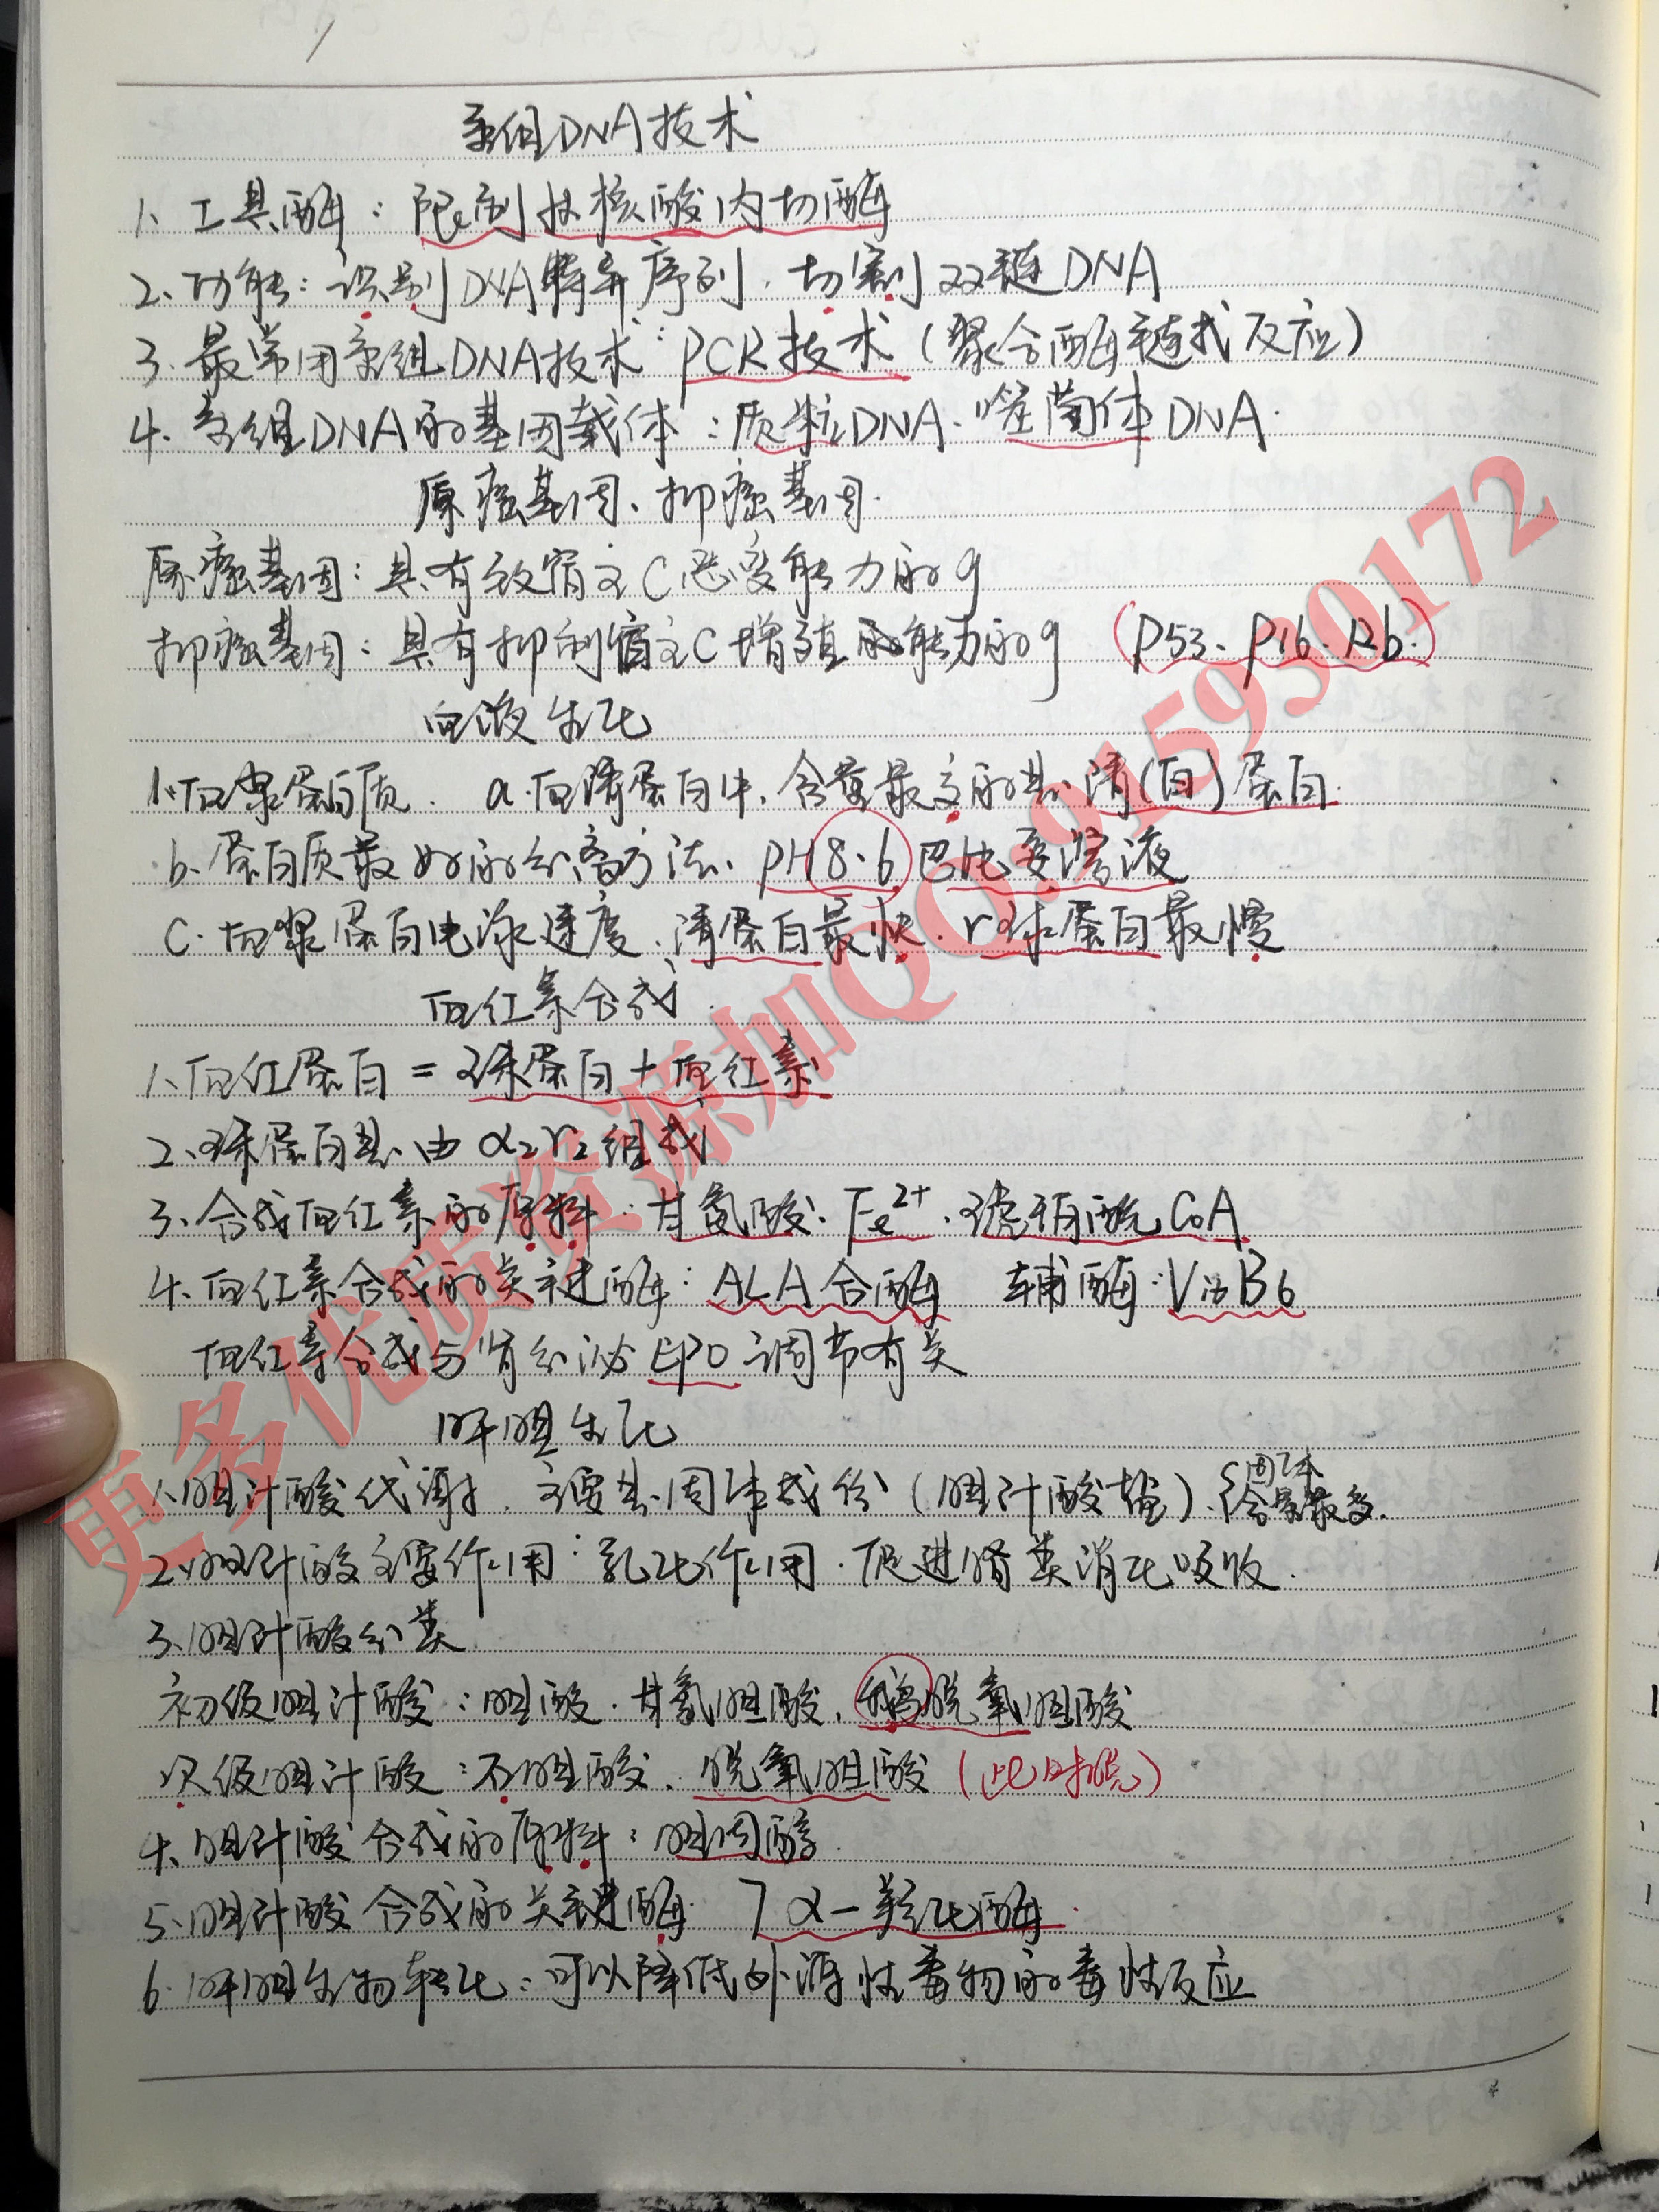 重组DNA技术
1、工具酶：限制性核酸内切酶
2、功能：识别DNA特异序列，切割双链DNA
3、最常用重组DNA技术：PCR技术（聚合酶链式反应）
4、重组DNA的基因载体：质粒DNA、噬菌体DNA.
原癌基因、抑癌基因.
原癌基因：具有致宿主C恶变能力的g
抑癌基因：具有抑制宿主C增殖的能力的g （P53、P16、Rb.）
血液生化
1.血浆蛋白质. a.血清蛋白中，含量最多的是.清(白)蛋白.
b.蛋白质最好的分离方法、PH8.6巴比妥溶液
C.血浆蛋白电泳速度、清蛋白最快.r球蛋白最慢
血红素合成.
1、血红蛋白＝球蛋白＋血红素
2、球蛋白是由α₂r₂组成
3、合成血红素的原料：甘氨酸、Fe²⁺、琥珀酰CoA
4、血红素合成的关键酶：ALA合酶 辅酶：VitB6
血红素合成与肾分泌EPO调节有关
肝胆生化
1、胆汁酸代谢，主要是.固体成份（胆汁酸盐）、{固体含量最多.
2、胆汁酸主要作用：乳化作用.促进脂类消化吸收.
3、胆汁酸分类
初级胆汁酸：胆酸.甘氨胆酸、鹅脱氧胆酸
次级胆汁酸：石胆酸、脱氧胆酸（此时脱）
4、胆汁酸合成的原料：胆固醇.
5、胆汁酸合成的关键酶 7α－羟化酶.
6.肝胆生物转化：可以降低外源性毒物的毒性反应
更多优质资源加QQ:915930172